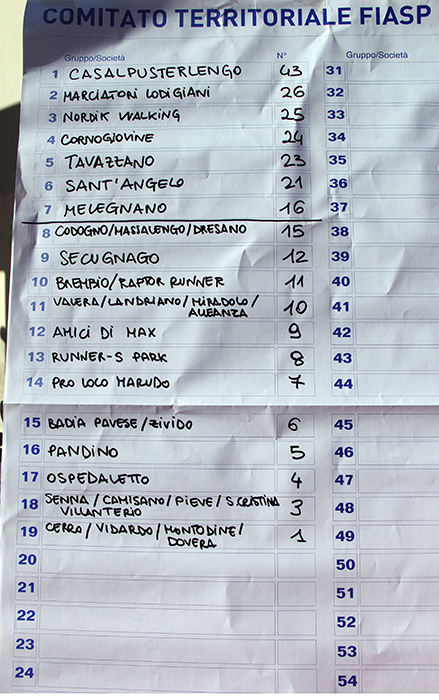 COMITATO TERRITORIALE FIASP
Gruppo/Società N° Gruppo/Società
1 CASALPUSTERLENGO 43 31
2 MARCIATORI LODIGIANI 26 32
3 NORDIK WALKING 25 33
4 CORNOGIOVINE 24 34
5 TAVAZZANO 23 35
6 SANT'ANGELO 21 36
7 MELEGNANO 16 37
8 CODOGNO/MASSALENGO/DRESANO 15 38
9 SECUGNAGO 12 39
10 BREMBIO/RAPTOR RUNNER 11 40
11 VALERA/LANDRIANO/MIRADOLO/ 10 41
ALLEANZA
12 AMICI DI MAX 9 42
13 RUNNER-S PARK 8 43
14 PRO LOCO MARUDO 7 44
15 BADIA PAVESE/ZIVIDO 6 45
16 PANDINO 5 46
17 OSPEDALETTO 4 47
18 SENNA/CAMISANO/PIEVE/S.CRISTINA 3 48
VILLANTERIO
19 CERRO/VIDARDO/MONTODINE/ 1 49
DOVERA
20 50
21 51
22 52
23 53
24 54